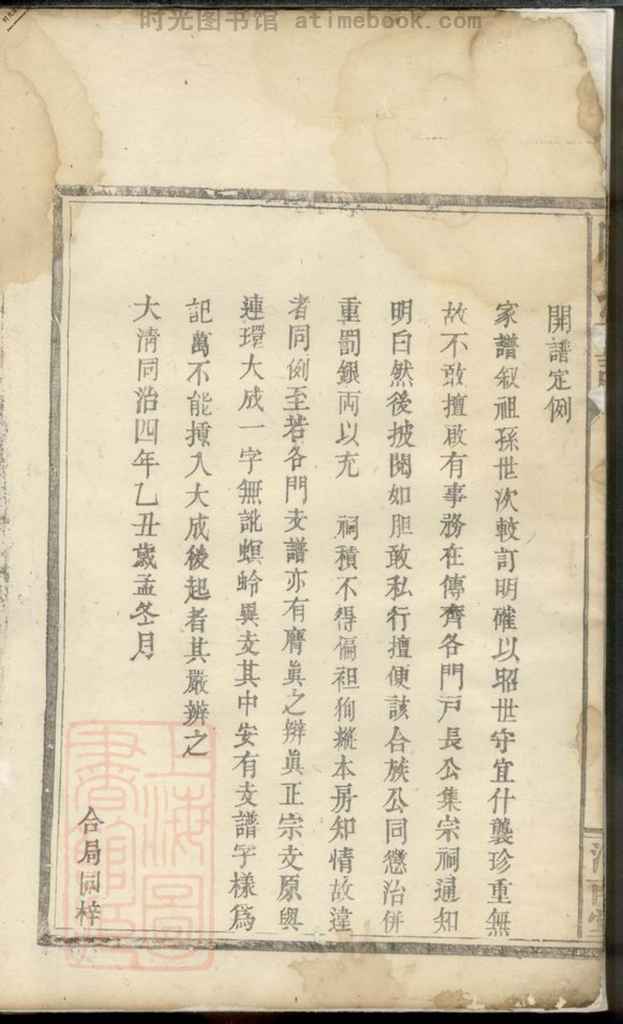 时光图书馆 atimebook.com
開譜定例
家譜叙祖孫世次較訂明確以昭世守宜什襲珍重無
故不敢擅啟有事務在傳齊各門戸長公集宗祠通知
明白然後披閱如胆敢私行擅便該合族公同懲治併
重罰銀両以充 祠積不得偏袒狥縱本房知情故違
者同例至若各門支譜亦有贋眞之辩眞正宗支原與
連環大成一字無訛螟蛉異支其中安有支譜字樣爲
記萬不能㨂入大成後起者其嚴辨之
大清同治四年乙丑歲孟冬月
合局同梓
上海圖
書館藏